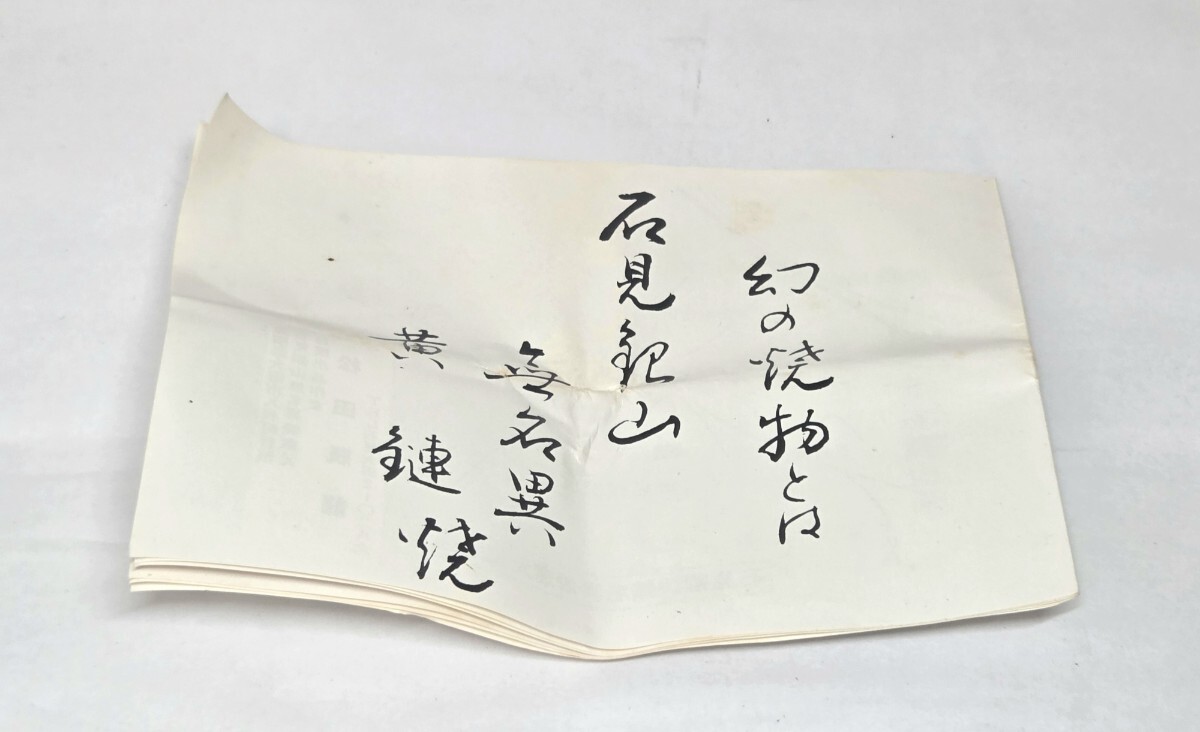 幻の焼物とは
石見銀山
無名異
黄鏈焼